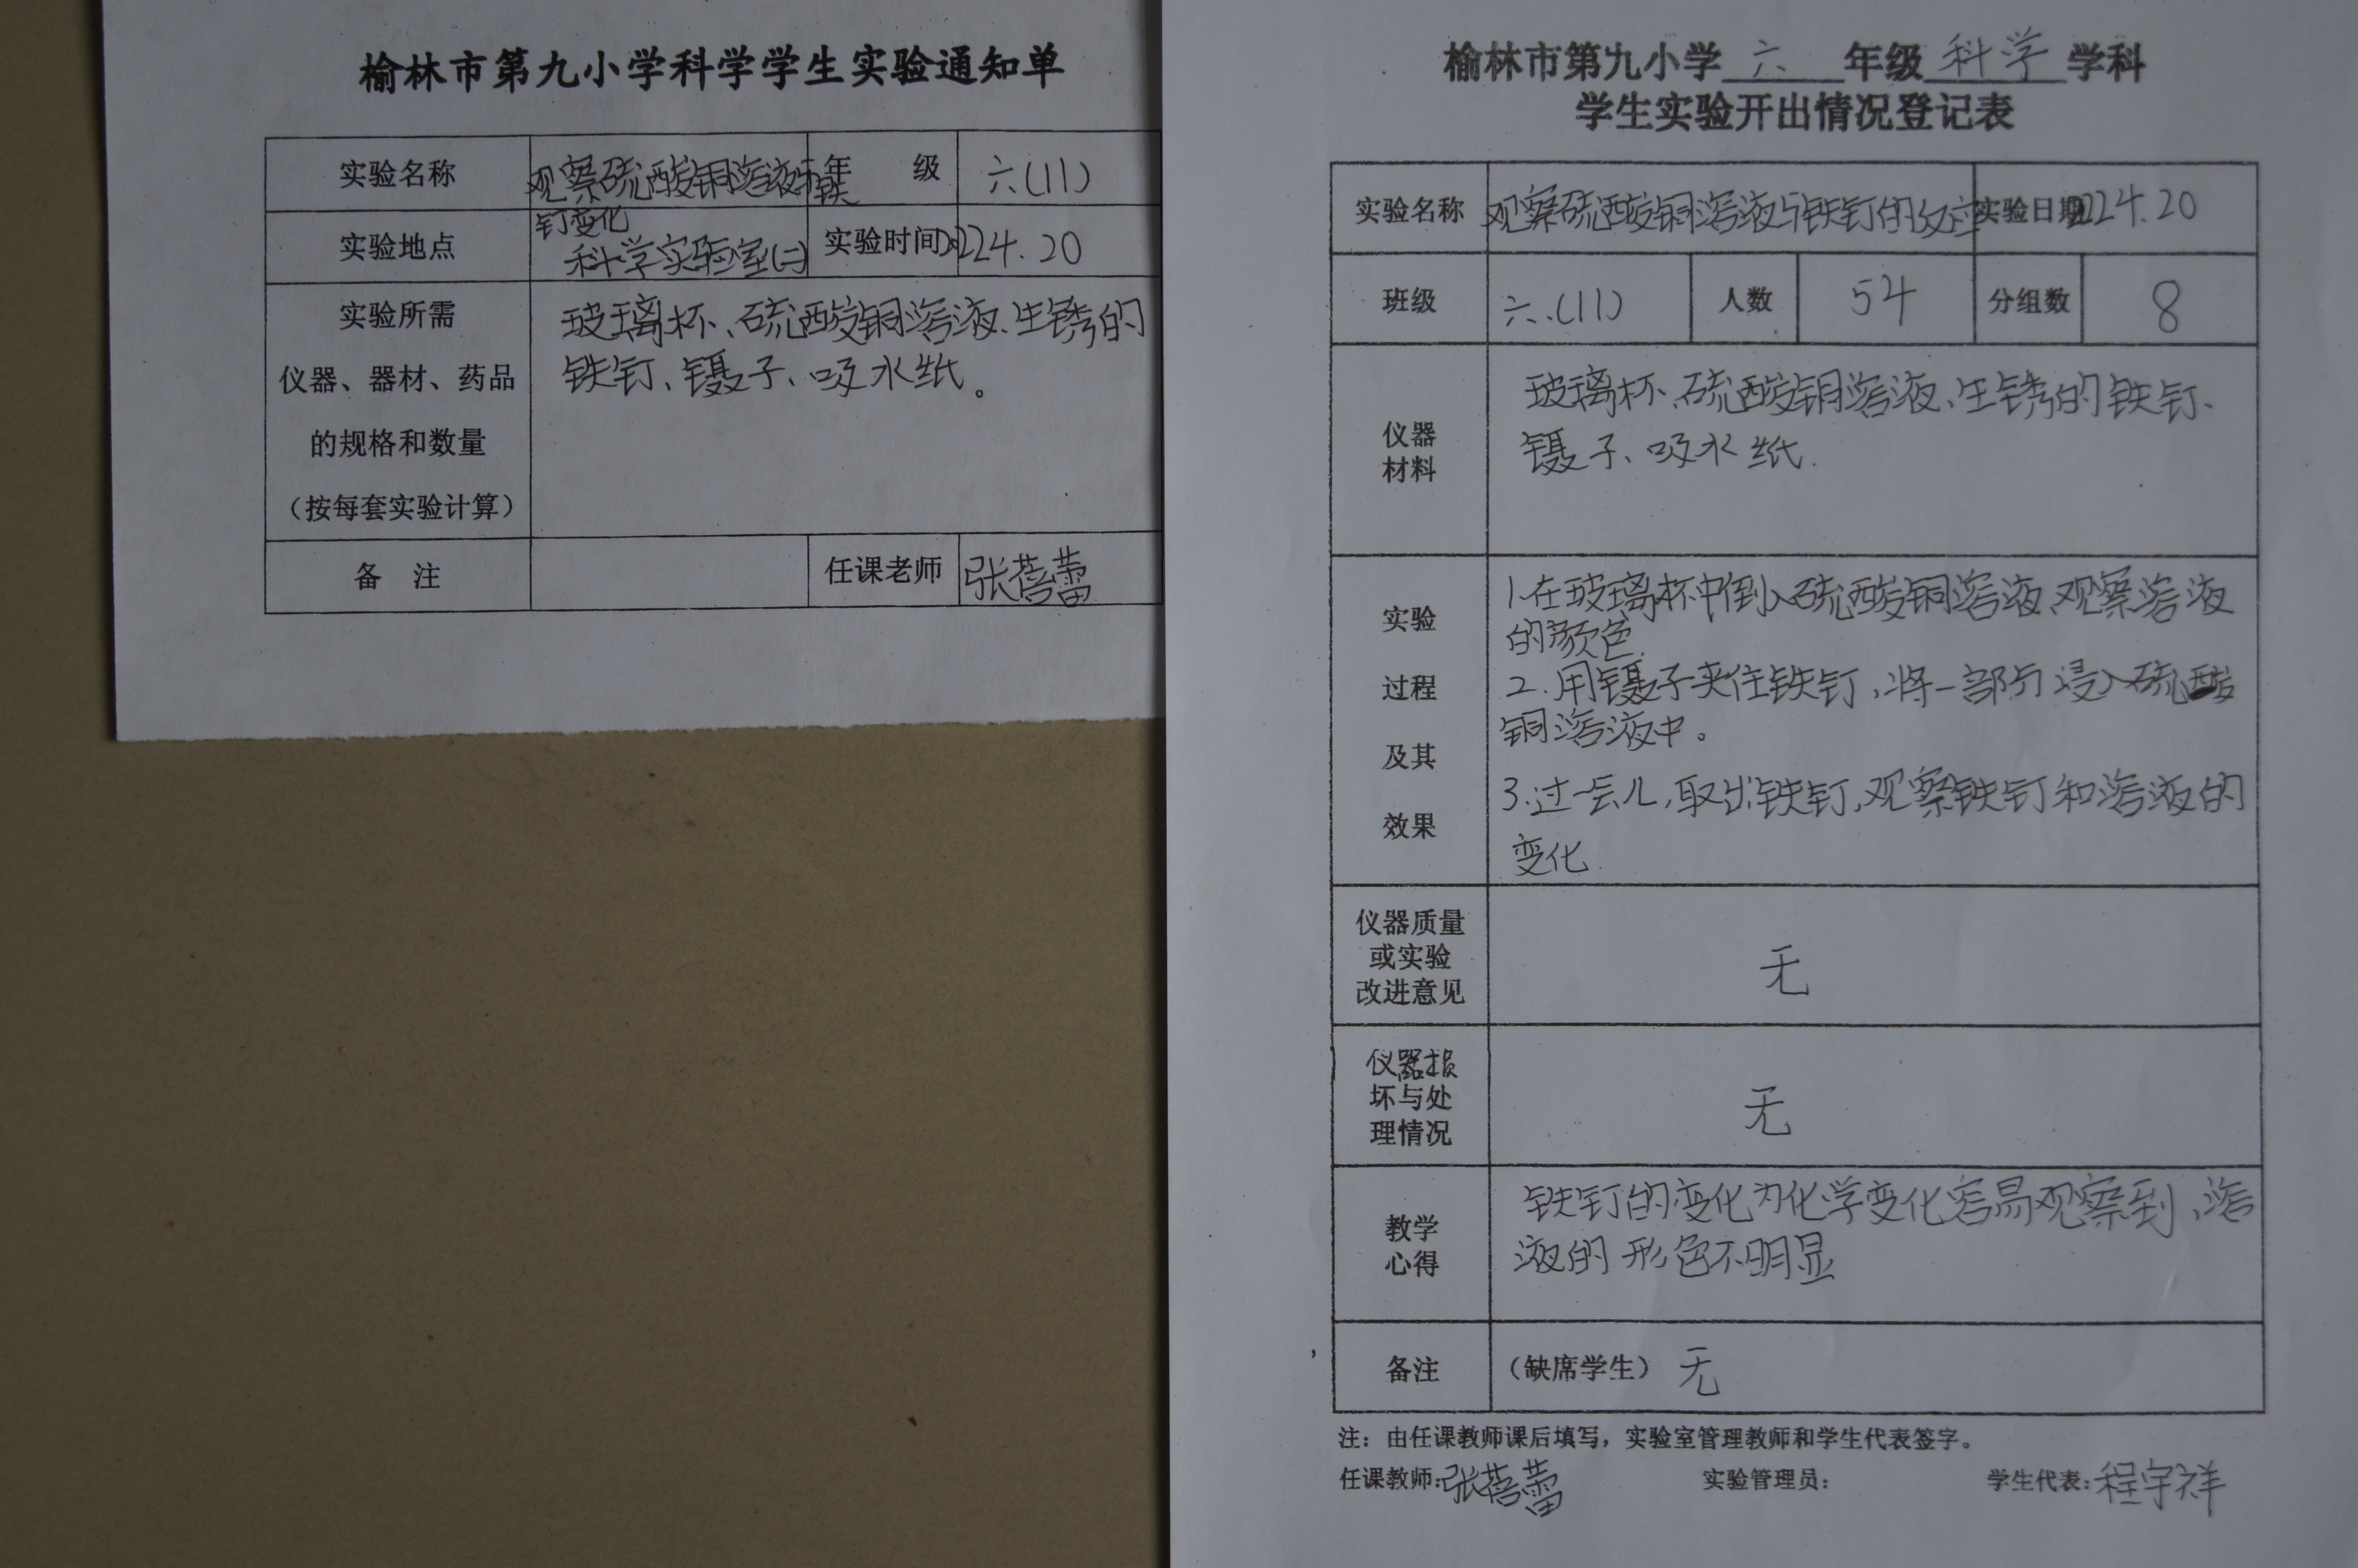 榆林市第九小学科学学生实验通知单
实验名称 观察硫酸铜溶液与铁 年 级 六(11)
钉变化
实验地点 科学实验室(二) 实验时间 2022 4.20
实验所需
仪器、器材、药品
的规格和数量
(按每套实验计算)
玻璃杯、硫酸铜溶液、生锈的
铁钉、镊子、吸水纸。
备 注 任课老师 张蓓蕾
榆林市第九小学 六 年级 科学 学科
学生实验开出情况登记表
实验名称 观察硫酸铜溶液与铁钉的反应 实验日期 2022 4.20
班级 六.(11) 人数 54 分组数 8
仪器
材料
玻璃杯、硫酸铜溶液、生锈的铁钉、
镊子、吸水纸.
实验
过程
及其
效果
1.在玻璃杯中倒入硫酸铜溶液、观察溶液
的颜色.
2.用镊子夹住铁钉,将一部分浸入硫酸
铜溶液中。
3.过一会儿,取出铁钉,观察铁钉和溶液的
变化.
仪器质量
或实验
改进意见
无
仪器损
坏与处
理情况
无
教学
心得
铁钉的变化为化学变化容易观察到、溶
液的形色不明显
备注 (缺席学生) 无
注:由任课教师课后填写,实验室管理教师和学生代表签字。
任课教师:张蓓蕾 实验管理员: 学生代表:程宇祥